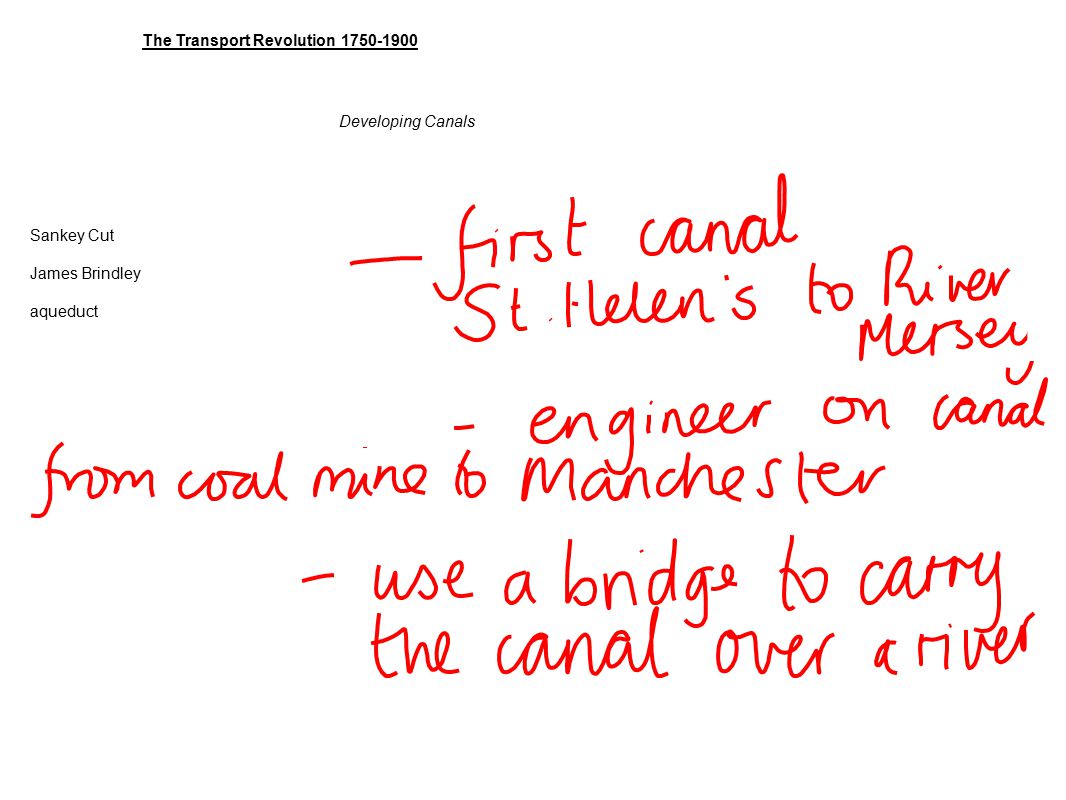 The Transport Revolution 1750-1900
Developing Canals
Sankey Cut
James Brindley
aqueduct
— first canal
St. Helen's to River
Mersey
- engineer on canal
from coal mine to Manchester
- use a bridge to carry
the canal over a river